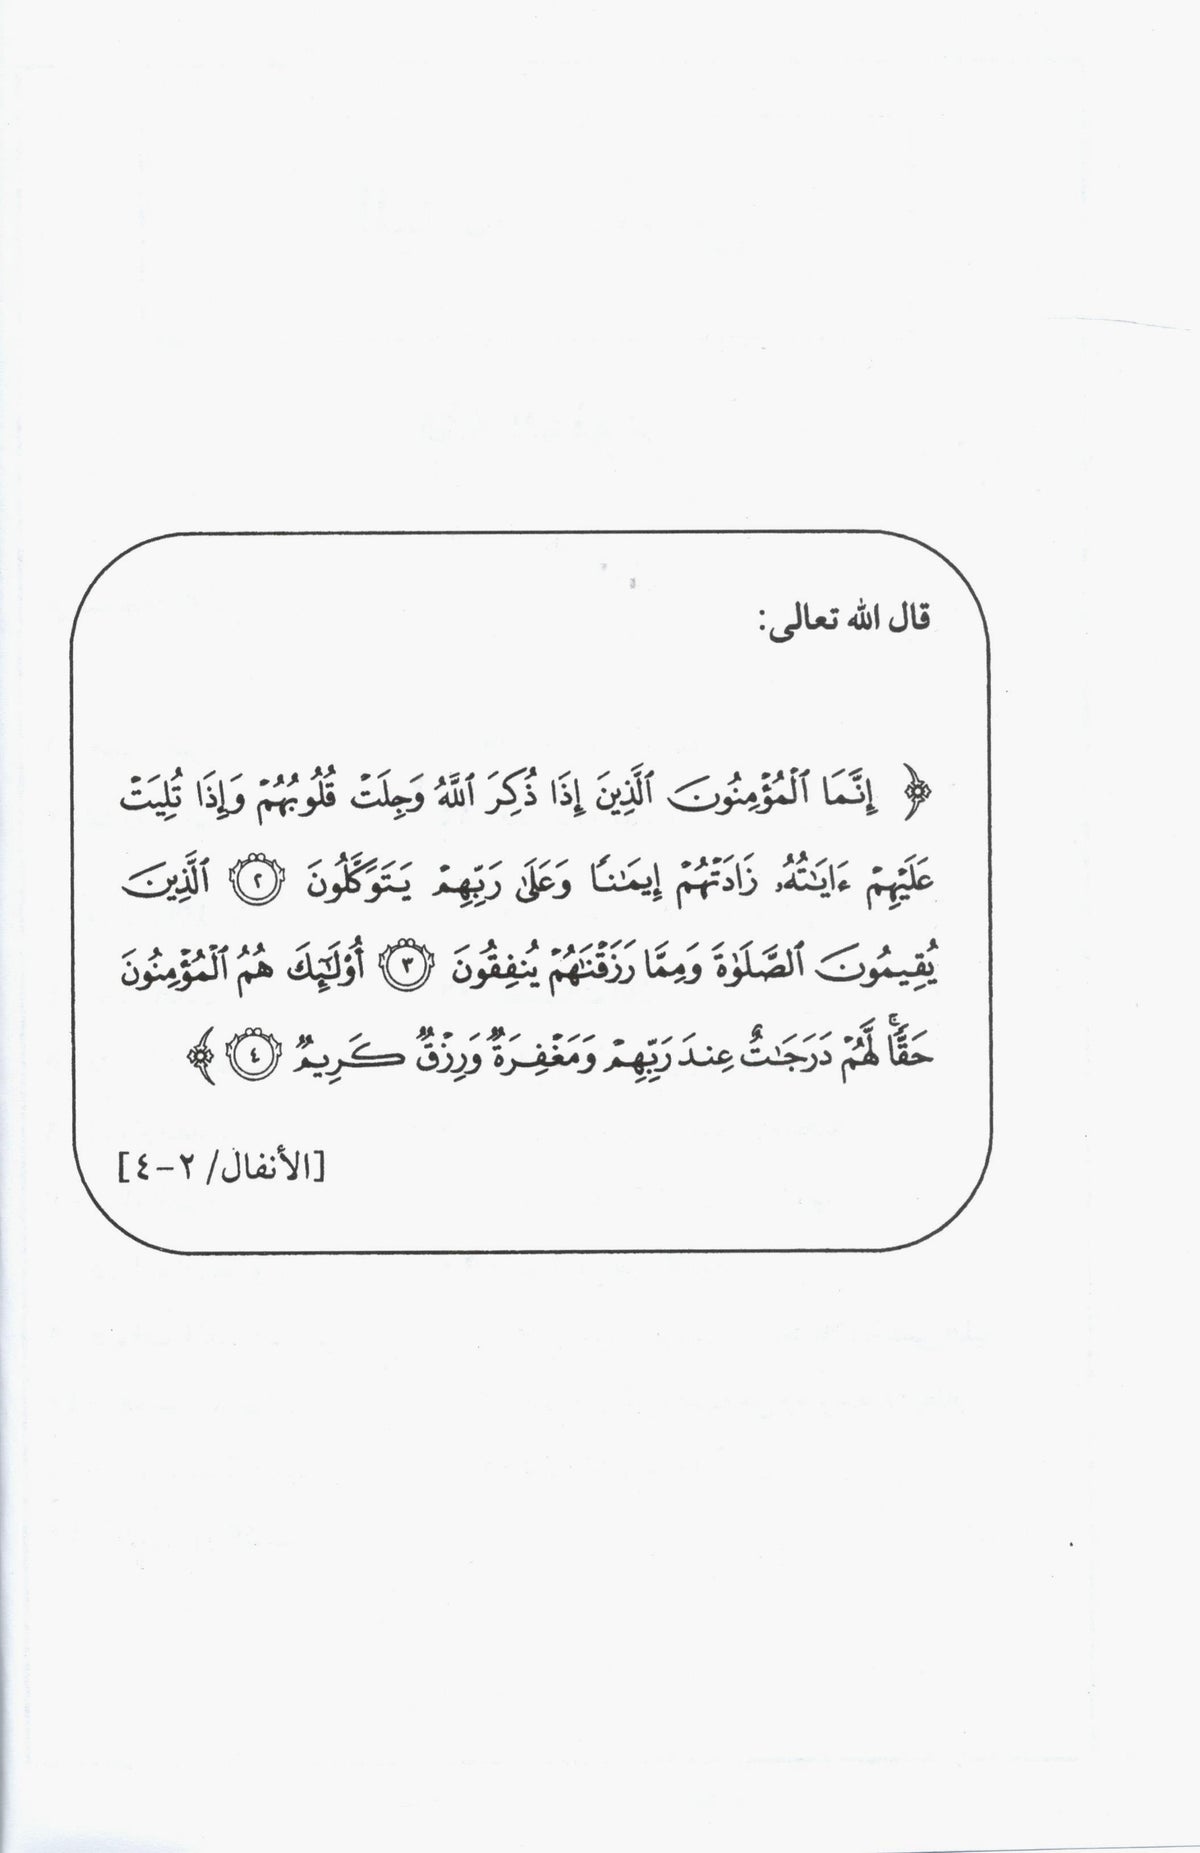 قال الله تعالى:
﴿ إِنَّمَا ٱلْمُؤْمِنُونَ ٱلَّذِينَ إِذَا ذُكِرَ ٱللَّهُ وَجِلَتْ قُلُوبُهُمْ وَإِذَا تُلِيَتْ
عَلَيْهِمْ ءَايَٰتُهُۥ زَادَتْهُمْ إِيمَٰنًا وَعَلَىٰ رَبِّهِمْ يَتَوَكَّلُونَ ٢ ٱلَّذِينَ
يُقِيمُونَ ٱلصَّلَوٰةَ وَمِمَّا رَزَقْنَٰهُمْ يُنفِقُونَ ٣ أُو۟لَٰٓئِكَ هُمُ ٱلْمُؤْمِنُونَ
حَقًّا ۚ لَّهُمْ دَرَجَٰتٌ عِندَ رَبِّهِمْ وَمَغْفِرَةٌ وَرِزْقٌ كَرِيمٌ ٤ ﴾
[الأنفال/ ٢-٤]